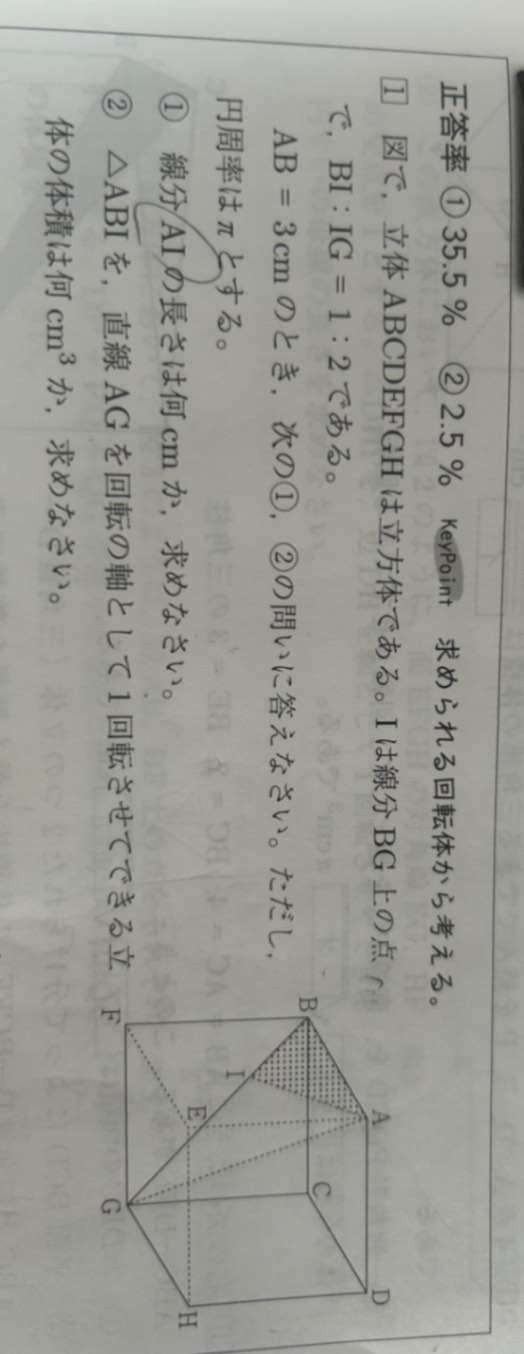 正答率 ①35.5% ②2.5% KeyPoint 求められる回転体から考える。
1 図で，立体ABCDEFGHは立方体である。Iは線分BG上の点
で，BI：IG＝1：2である。
AB＝3cmのとき，次の①，②の問いに答えなさい。ただし，
円周率はπとする。
① 線分AIの長さは何cmか，求めなさい。
② △ABIを，直線AGを回転の軸として1回転させてできる立
体の体積は何cm³か，求めなさい。
A
D
B
C
I
E
F
G
H